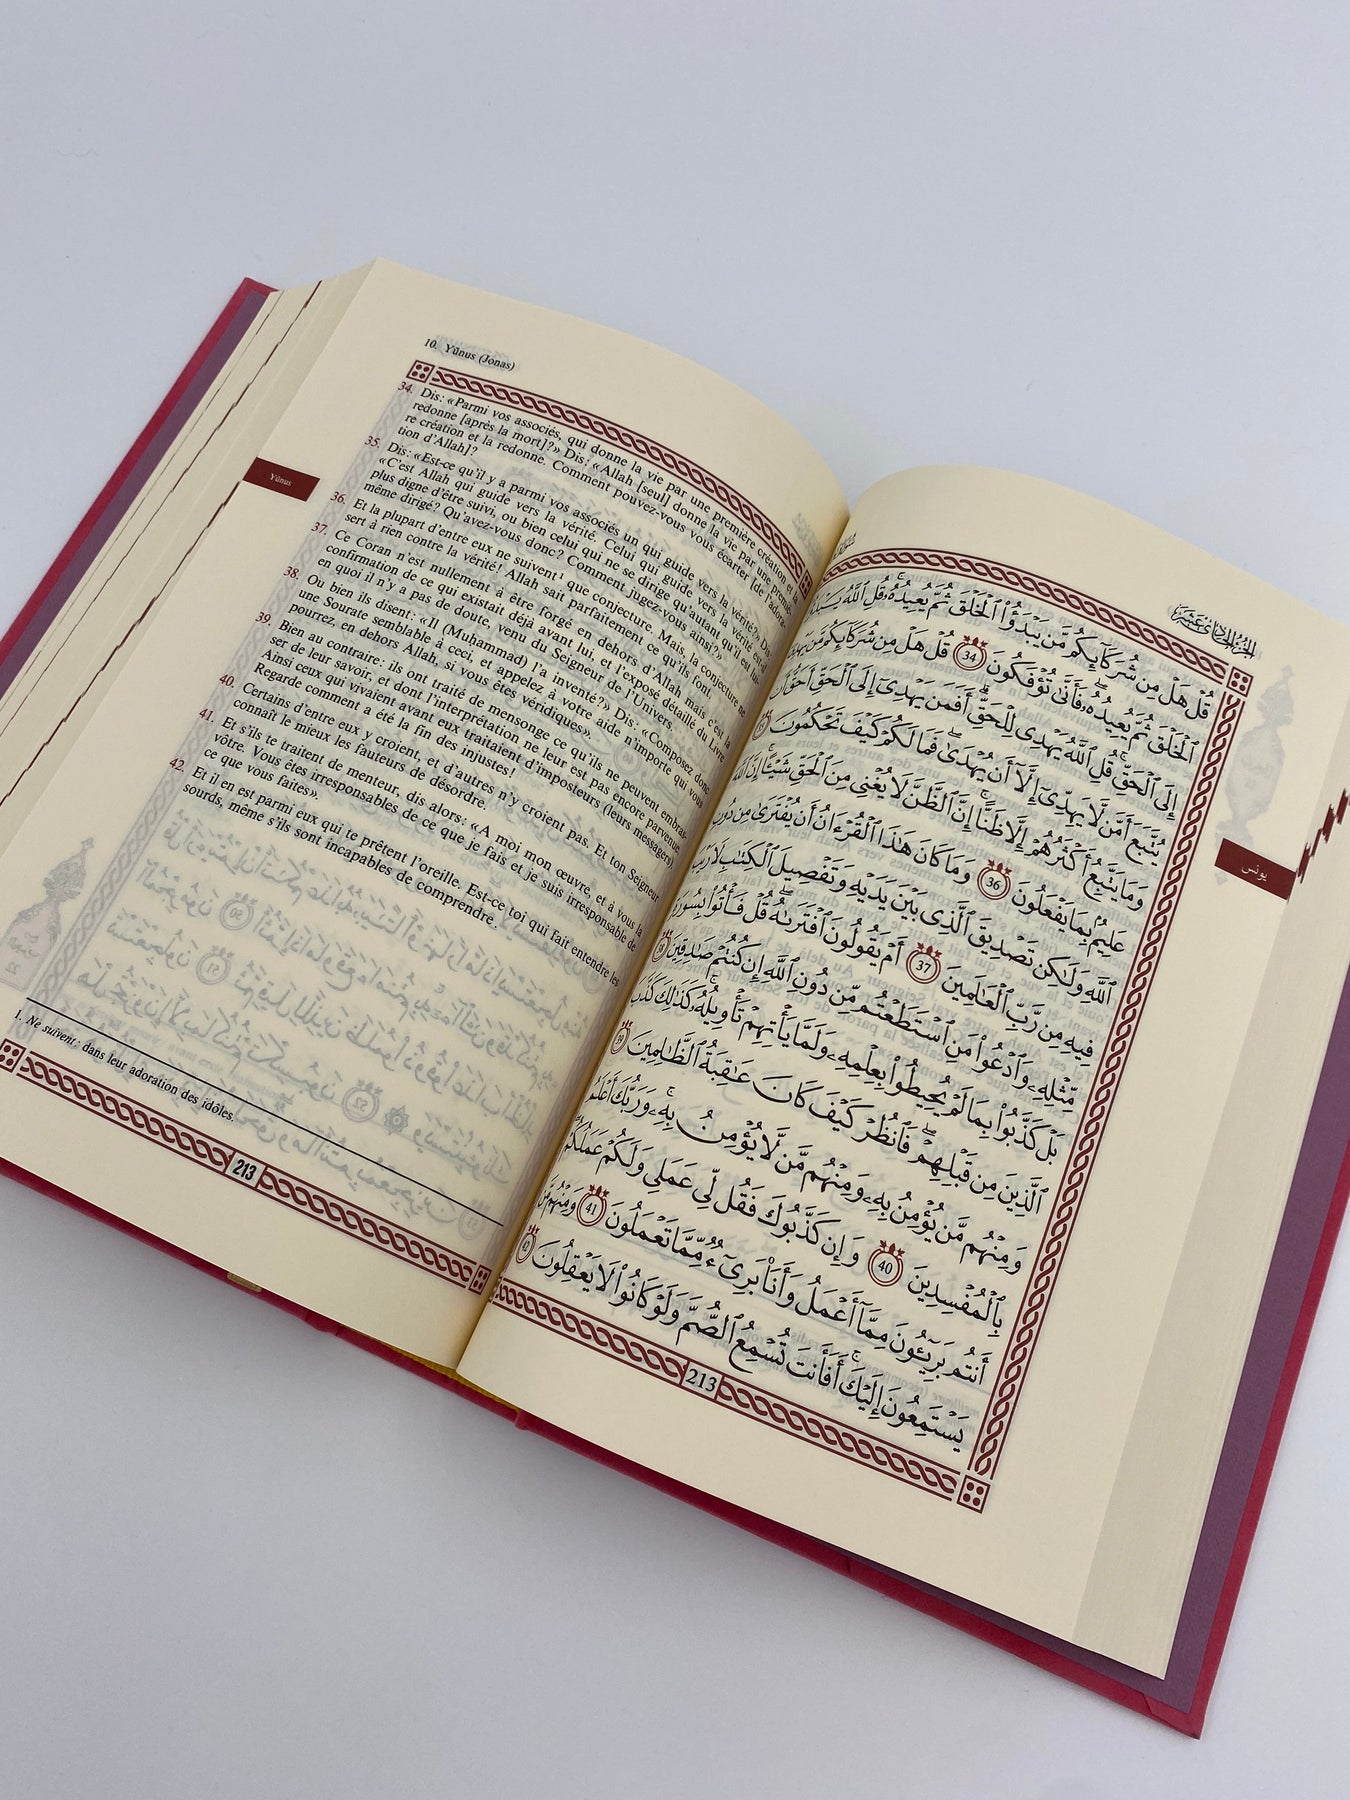 10. Yūnus (Jonas)
34. Dis: «Parmi vos associés, qui donne la vie par une première création et la
redonne [après la mort]?» Dis: «Allah [seul] donne la vie par une premiè-
re création et la redonne. Comment pouvez-vous vous écarter [de l'adora-
tion d'Allah]?
35. Dis: «Est-ce qu'il y a parmi vos associés un qui guide vers la vérité?» Dis:
«C'est Allah qui guide vers la vérité. Celui qui guide vers la vérité est-il
plus digne d'être suivi, ou bien celui qui ne se dirige qu'autant qu'il est lui-
même dirigé? Qu'avez-vous donc? Comment jugez-vous ainsi?»
36. Et la plupart d'entre eux ne suivent¹ que conjecture. Mais, la conjecture ne
sert à rien contre la vérité! Allah sait parfaitement ce qu'ils font.
37. Ce Coran n'est nullement à être forgé en dehors d'Allah mais c'est la
confirmation de ce qui existait déjà avant lui, et l'exposé détaillé du Livre
en quoi il n'y a pas de doute, venu du Seigneur de l'Univers.
38. Ou bien ils disent: «Il (Muhammad) l'a inventé?» Dis: «Composez donc
une Sourate semblable à ceci, et appelez à votre aide n'importe qui vous
pourrez, en dehors Allah, si vous êtes véridiques».
39. Bien au contraire: ils ont traité de mensonge ce qu'ils ne peuvent embras-
ser de leur savoir, et dont l'interprétation ne leur est pas encore parvenue.
Ainsi ceux qui vivaient avant eux traitaient d'imposteurs (leurs messagers).
Regarde comment a été la fin des injustes!
40. Certains d'entre eux y croient, et d'autres n'y croient pas. Et ton Seigneur
connaît le mieux les fauteurs de désordre.
41. Et s'ils te traitent de menteur, dis alors: «A moi mon œuvre, et à vous la
vôtre. Vous êtes irresponsables de ce que je fais et je suis irresponsable de
ce que vous faites».
42. Et il en est parmi eux qui te prêtent l'oreille. Est-ce toi qui fait entendre les
sourds, même s'ils sont incapables de comprendre.
1. Ne suivent: dans leur adoration des idôles.
213
Yūnus
الجزء الحادي عشر
قُلْ هَلْ مِن شُرَكَآئِكُم مَّن يَبْدَؤُا۟ ٱلْخَلْقَ ثُمَّ يُعِيدُهُۥ ۚ قُلِ ٱللَّهُ
ٱلْخَلْقَ ثُمَّ يُعِيدُهُۥ ۖ فَأَنَّىٰ تُؤْفَكُونَ 34 قُلْ هَلْ مِن شُرَكَآئِكُم مَّن
إِلَى ٱلْحَقِّ ۚ قُلِ ٱللَّهُ يَهْدِى لِلْحَقِّ ۗ أَفَمَن يَهْدِىٓ إِلَى ٱلْحَقِّ أَحَقُّ أَن
يُتَّبَعَ أَمَّن لَّا يَهِدِّىٓ إِلَّآ أَن يُهْدَىٰ ۖ فَمَا لَكُمْ كَيْفَ تَحْكُمُونَ
وَمَا يَتَّبِعُ أَكْثَرُهُمْ إِلَّا ظَنًّا ۚ إِنَّ ٱلظَّنَّ لَا يُغْنِى مِنَ ٱلْحَقِّ شَيْـًٔا ۚ إِنَّ ٱللَّهَ
عَلِيمٌۢ بِمَا يَفْعَلُونَ 36 وَمَا كَانَ هَٰذَا ٱلْقُرْءَانُ أَن يُفْتَرَىٰ مِن دُونِ
ٱللَّهِ وَلَٰكِن تَصْدِيقَ ٱلَّذِى بَيْنَ يَدَيْهِ وَتَفْصِيلَ ٱلْكِتَٰبِ لَا رَيْبَ
فِيهِ مِن رَّبِّ ٱلْعَٰلَمِينَ 37 أَمْ يَقُولُونَ ٱفْتَرَىٰهُ ۖ قُلْ فَأْتُوا۟ بِسُورَةٍ
مِّثْلِهِۦ وَٱدْعُوا۟ مَنِ ٱسْتَطَعْتُم مِّن دُونِ ٱللَّهِ إِن كُنتُمْ صَٰدِقِينَ 38
بَلْ كَذَّبُوا۟ بِمَا لَمْ يُحِيطُوا۟ بِعِلْمِهِۦ وَلَمَّا يَأْتِهِمْ تَأْوِيلُهُۥ ۚ كَذَٰلِكَ كَذَّبَ
ٱلَّذِينَ مِن قَبْلِهِمْ ۖ فَٱنظُرْ كَيْفَ كَانَ عَٰقِبَةُ ٱلظَّٰلِمِينَ 39
وَمِنْهُم مَّن يُؤْمِنُ بِهِۦ وَمِنْهُم مَّن لَّا يُؤْمِنُ بِهِۦ ۚ وَرَبُّكَ أَعْلَمُ
بِٱلْمُفْسِدِينَ 40 وَإِن كَذَّبُوكَ فَقُل لِّى عَمَلِى وَلَكُمْ عَمَلُكُمْ ۖ
أَنتُم بَرِيٓـُٔونَ مِمَّآ أَعْمَلُ وَأَنَا۠ بَرِىٓءٌ مِّمَّا تَعْمَلُونَ 41 وَمِنْهُم مَّن
يَسْتَمِعُونَ إِلَيْكَ ۚ أَفَأَنتَ تُسْمِعُ ٱلصُّمَّ وَلَوْ كَانُوا۟ لَا يَعْقِلُونَ 42
213
يونس